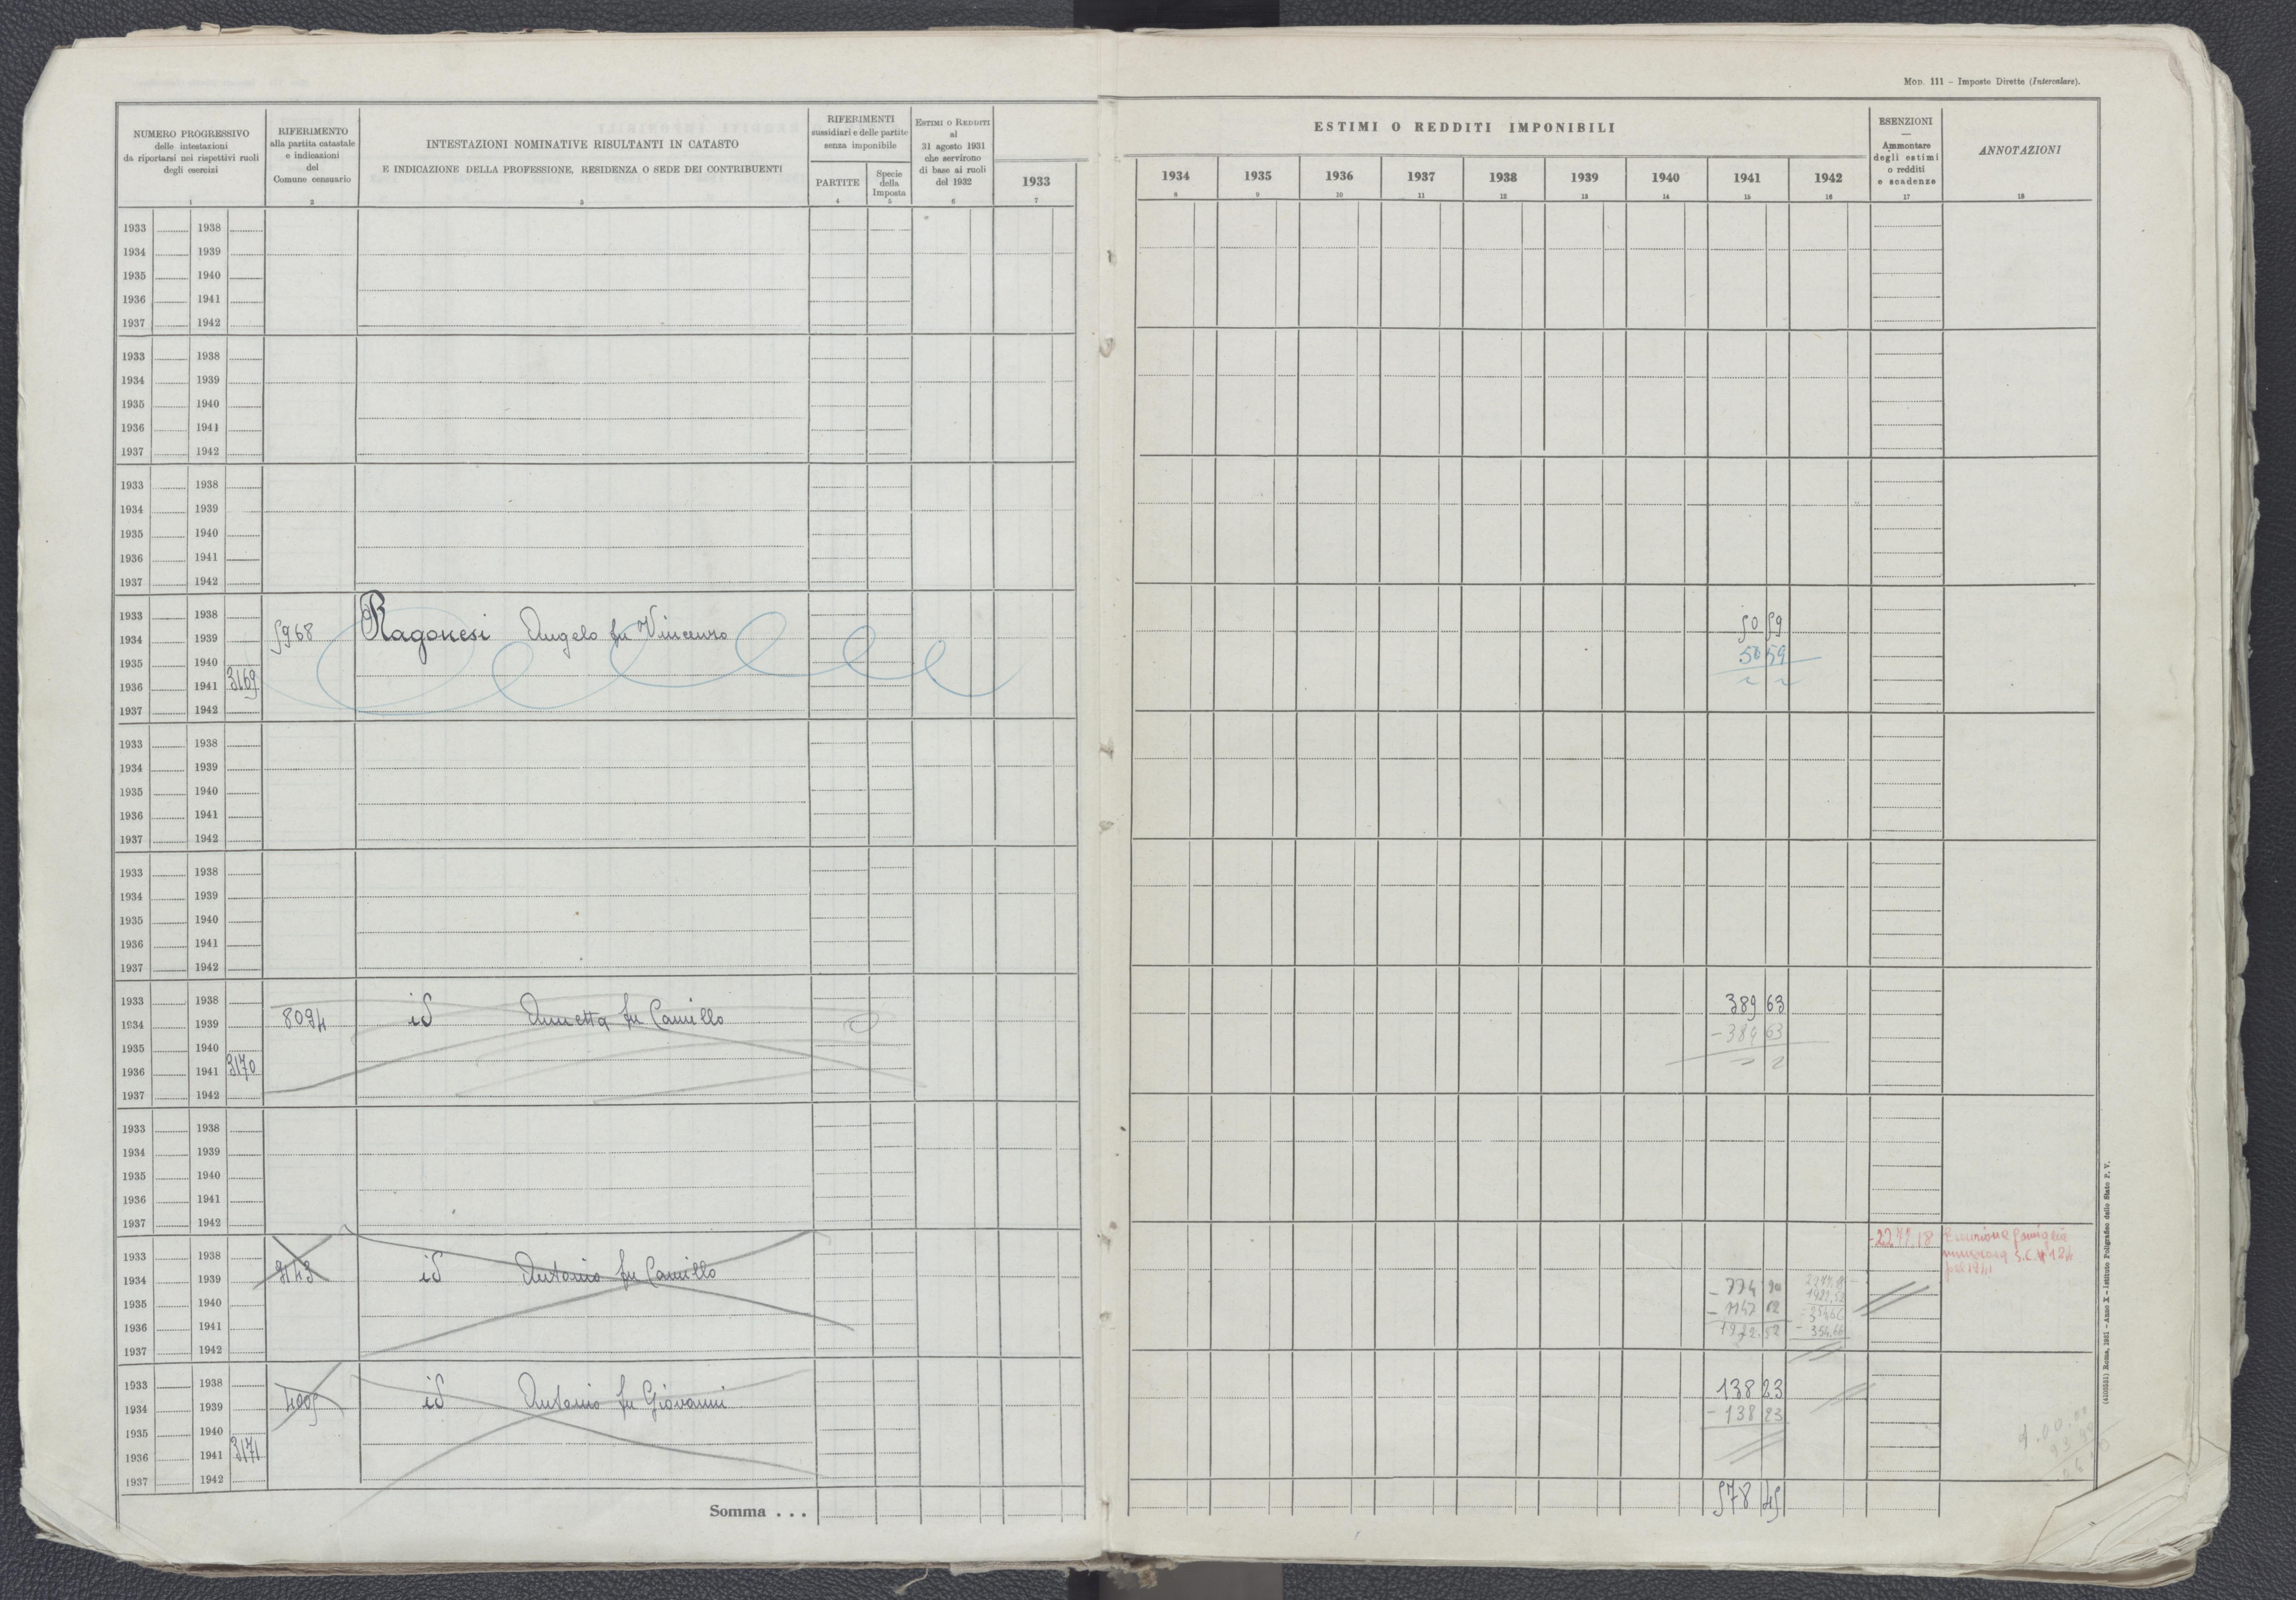 MOD. 111 - Imposte Dirette (Intercalare).
NUMERO PROGRESSIVO
delle intestazioni
da riportarsi nei rispettivi ruoli
degli esercizi
1
RIFERIMENTO
alla partita catastale
e indicazioni
del
Comune censuario
2
INTESTAZIONI NOMINATIVE RISULTANTI IN CATASTO
E INDICAZIONE DELLA PROFESSIONE, RESIDENZA O SEDE DEI CONTRIBUENTI
3
RIFERIMENTI
sussidiari e delle partite
senza imponibile
PARTITE
4
Specie
della
Imposta
5
ESTIMI O REDDITI
al
31 agosto 1931
che servirono
di base ai ruoli
del 1932
6
1933
7
ESTIMI O REDDITI IMPONIBILI
1934 1935 1936 1937 1938 1939 1940 1941 1942
8 9 10 11 12 13 14 15 16
ESENZIONI
—
Ammontare
degli estimi
o redditi
e scadenze
17
ANNOTAZIONI
18
1933 1938
1934 1939
1935 1940
1936 1941
1937 1942
1933 1938
1934 1939
1935 1940
1936 1941
1937 1942
1933 1938
1934 1939
1935 1940
1936 1941
1937 1942
1933 1938 50 59
1934 1939 5968 Ragonesi Angelo fu Vincenzo
1935 1940 50 59
1936 1941 3169
1937 1942
1933 1938
1934 1939
1935 1940
1936 1941
1937 1942
1933 1938
1934 1939
1935 1940
1936 1941
1937 1942
1933 1938 389 63
1934 1939 8094 id Annetta fu Camillo
1935 1940
1936 1941 3170
1937 1942
1933 1938
1934 1939
1935 1940
1936 1941
1937 1942
1933 1938
1934 1939 id Antonio fu Camillo
1935 1940 - 774 90
1936 1941
1937 1942
1933 1938 138 23
1934 1939 4005 id Antonio fu Giovanni - 138 23
1935 1940
1936 1941 3171
1937 1942
Somma . . . 578 45
(4100531) Roma, 1931 - Anno X - Istituto Poligrafico dello Stato P. V.